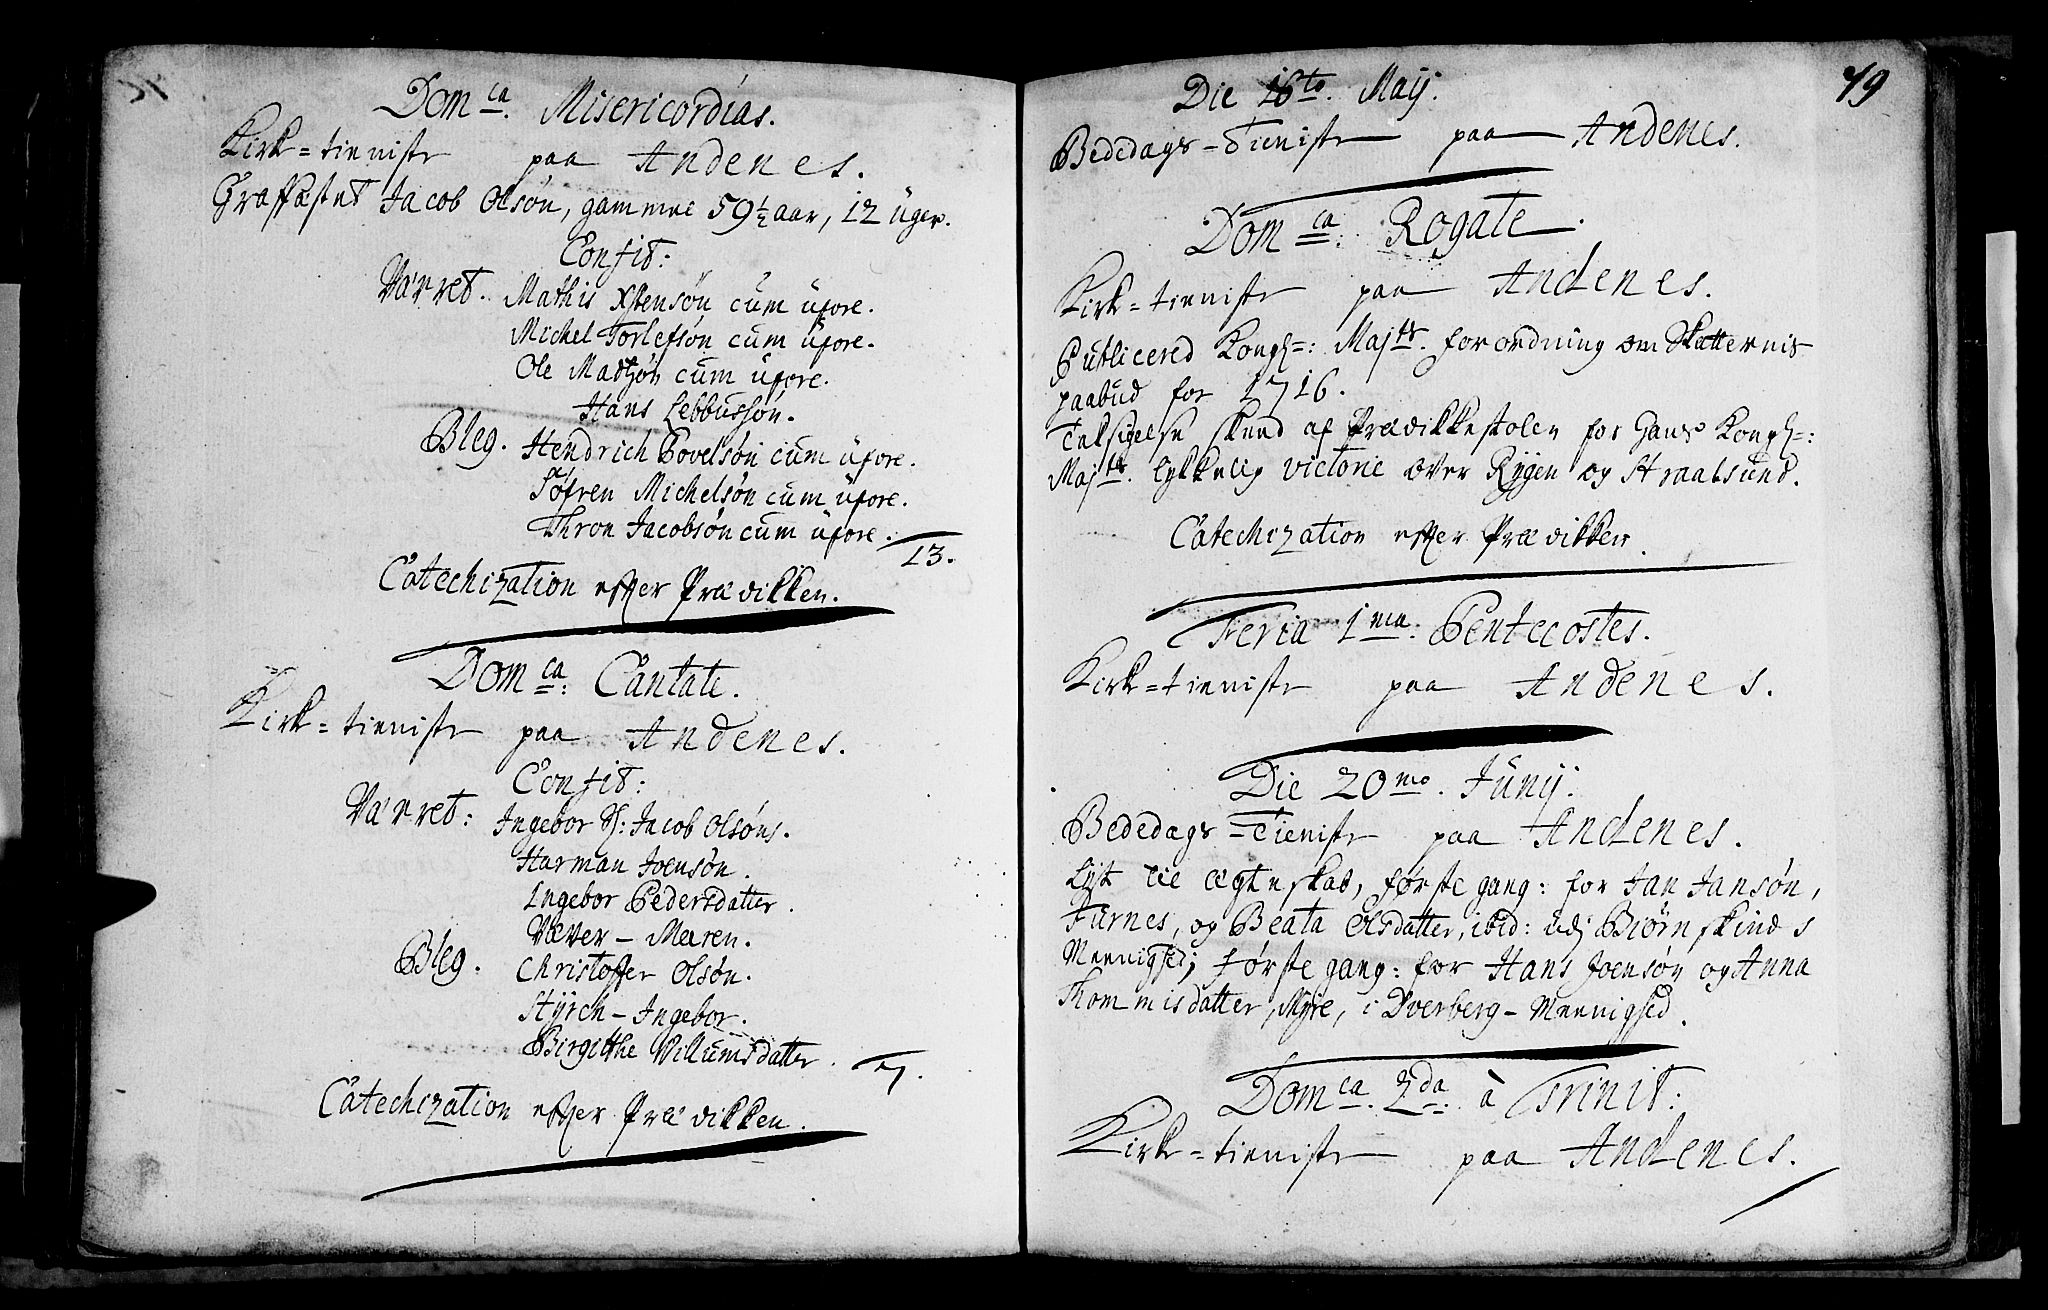 Dom ca. Misericordias.
Kirk=tieniste paa Andenes.
Graffæstet Jacob Olsøn, gammel 59 1/2 aar, 12 üger.
Confit:
Værret. Mathis Xstensøn cum üxore.
Michel Torlefsøn cum üxore.
Ole Madtzøn cum üxore.
Hans Lebbussøn.
Bleg. Hendrich Povelsøn cum üxore.
Søfren Michelsøn cum üxore.
Thron Jacobsøn cum üxore.
13.
Catechization effter Prædikken.
Dom ca. Cantate.
Kirk=tieniste paa Andenes.
Confit:
Værret: Ingebor Sl: Jacob Olsøns.
Harman Joensøn.
Ingebor Pedersdatter.
Væver - Maren.
Bleg. Christoffer Olsøn.
Styrch - Ingebor.
Birgitthe Villumsdatter.
7.
Catechization effter Prædikken.
49
Die 16to. Maij.
Bededags-Tieniste paa Andenes.
Dom ca. Rogate.
Kirk=tieniste paa Andenes.
Publicered Kongl=: Majts. forordning om Skatternis
paabud for 1716.
Taksigelse skeed af Prædikkestolen for Hans Kongl=:
Majts. lykkelig victorie over Rygen og Straalsund.
Catechization effter Prædikken.
Feria 1ma. Pentecostes.
Kirk=tieniste paa Andenes.
Die 20mo. Junij.
Bededags=Tieniste paa Andenes.
Lyst til ægteskab, første gang: for Jan Jansøn,
Turnes, og Beata Olsdatter, ibid: udj Biørnskinds
Meenighed; første gang: for Hans Joensøn og Anna
Thommisdatter, Myre, i Dverberg-Meenighed.
Dom ca. 2da. à Trinit:
Kirk=tieniste paa Andenes.